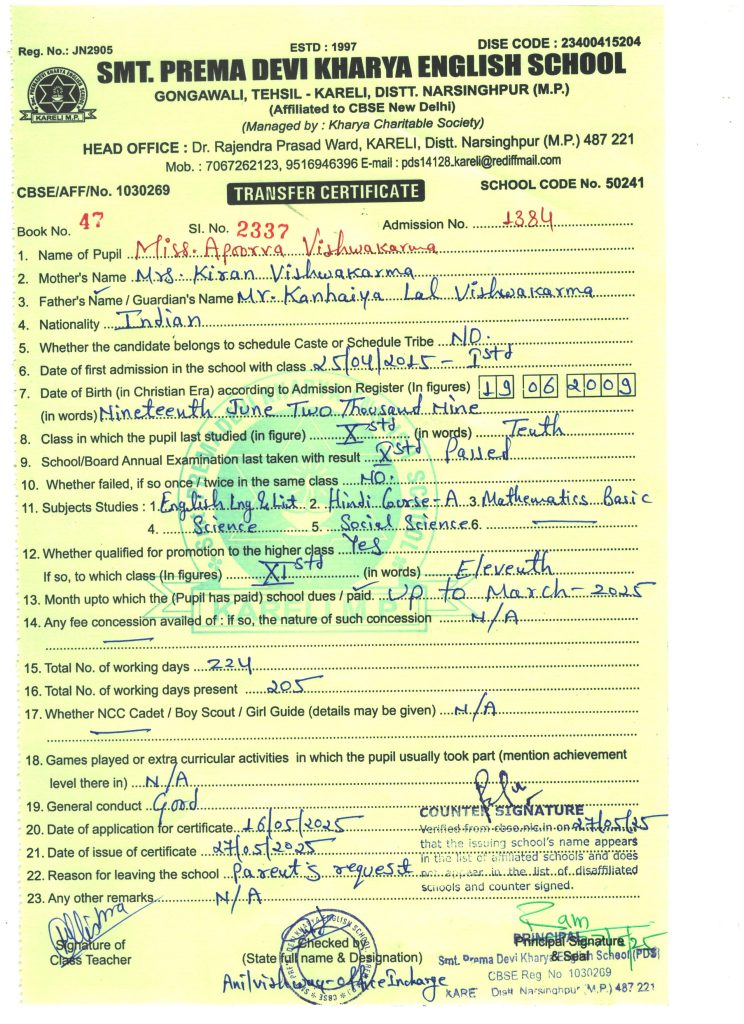 Reg. No.: JN2905 ESTD : 1997 DISE CODE : 23400415204
SMT. PREMA DEVI KHARYA ENGLISH SCHOOL
KARELI M.P.
GONGAWALI, TEHSIL - KARELI, DISTT. NARSINGHPUR (M.P.)
(Affiliated to CBSE New Delhi)
(Managed by : Kharya Charitable Society)
HEAD OFFICE : Dr. Rajendra Prasad Ward, KARELI, Distt. Narsinghpur (M.P.) 487 221
Mob. : 7067262123, 9516946396 E-mail : pds14128.kareli@rediffmail.com
CBSE/AFF/No. 1030269 TRANSFER CERTIFICATE SCHOOL CODE No. 50241
Book No. 47 Sl. No. 2337 Admission No. 1384
1. Name of Pupil Miss. Apoorva Vishwakarma
2. Mother's Name Mrs. Kiran Vishwakarma
3. Father's Name / Guardian's Name Mr. Kanhaiya Lal Vishwakarma
4. Nationality Indian
5. Whether the candidate belongs to schedule Caste or Schedule Tribe NO.
6. Date of first admission in the school with class 25/04/2015 - Istd
7. Date of Birth (in Christian Era) according to Admission Register (In figures) 19 06 2009
(in words) Nineteenth June Two Thousand Nine
8. Class in which the pupil last studied (in figure) X std (in words) Tenth
9. School/Board Annual Examination last taken with result X std Passed
10. Whether failed, if so once / twice in the same class NO.
11. Subjects Studies : 1. English Lng & List 2. Hindi Corse-A 3. Mathematics Basic
4. Science 5. Social Science 6.
12. Whether qualified for promotion to the higher class Yes
If so, to which class (In figures) XI std (in words) Eleventh
13. Month upto which the (Pupil has paid) school dues / paid. Up to March - 2025
KARELI M.P.
14. Any fee concession availed of : if so, the nature of such concession N/A
15. Total No. of working days 224
16. Total No. of working days present 205
17. Whether NCC Cadet / Boy Scout / Girl Guide (details may be given) N/A
18. Games played or extra curricular activities in which the pupil usually took part (mention achievement
level there in) N/A
19. General conduct Good
COUNTER SIGNATURE
20. Date of application for certificate 16/05/2025
Verified from cbse.nic.in on 27/05/25
that the issuing school's name appears
21. Date of issue of certificate 27/05/2025
in the list of affiliated schools and does
22. Reason for leaving the school Parent's request
not appear in the list of disaffiliated
schools and counter signed.
23. Any other remarks N/A
Signature of
Class Teacher
Checked by
(State full name & Designation)
Anil vishway - office Incharge
Ram
PRINCIPAL
Principal Signature
& Seal
Smt. Prema Devi Kharya English School (PDS)
CBSE Reg. No. 1030269
KARE Distt. Narsinghpur (M.P.) 487 221